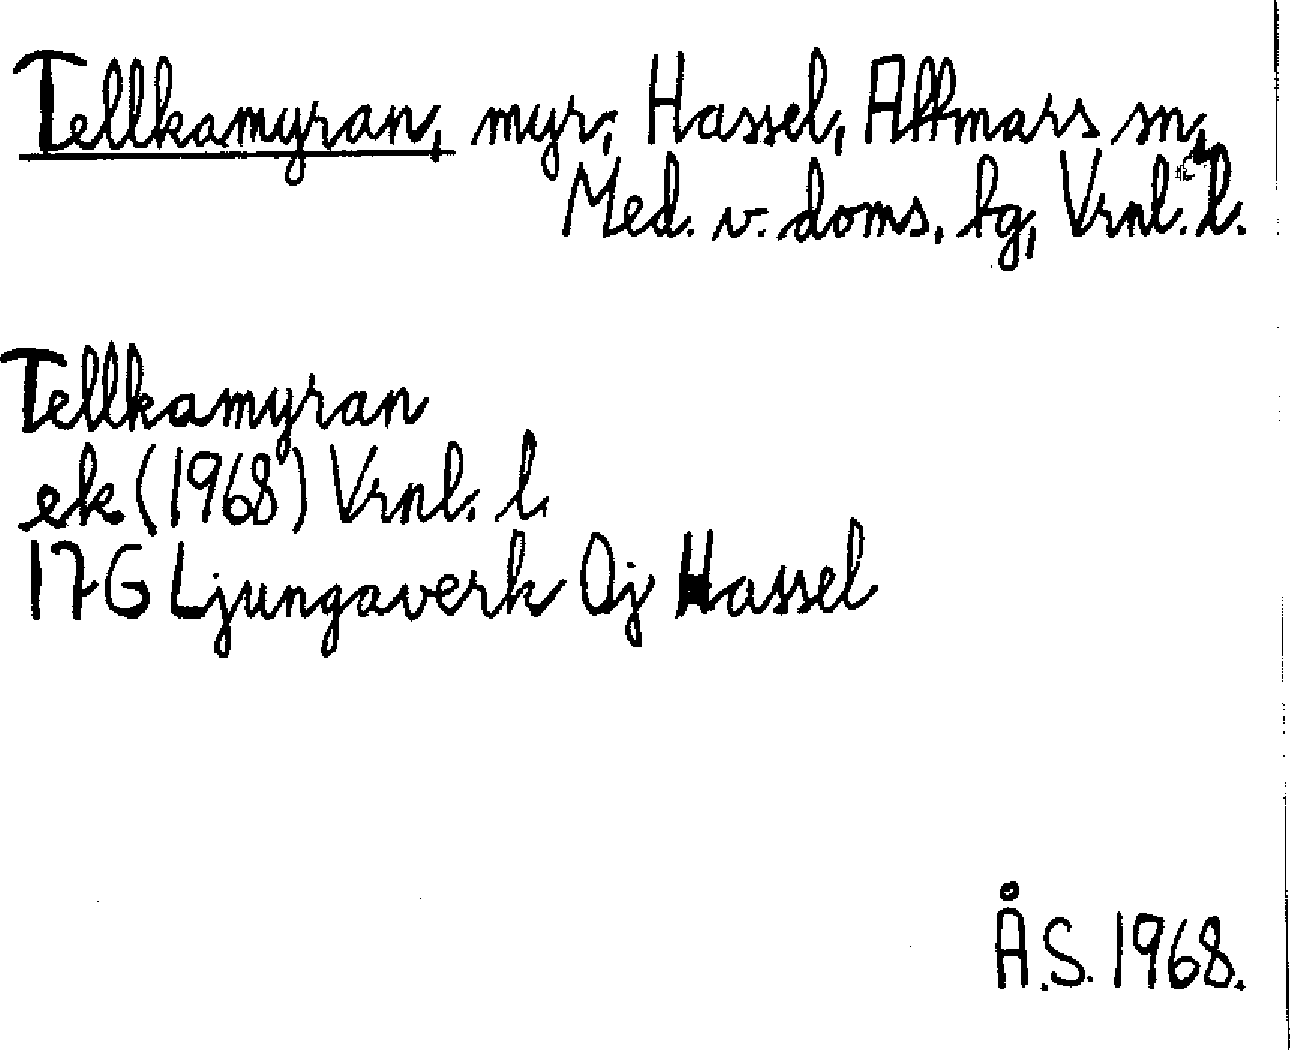 Tellkamyran, myr, Hassel, Attmars sn,
Med. v. doms. lg, Vrnl. l.
Tellkamyran
ek (1968) Vrnl. l.
17G Ljungaverk 0j Hassel
Å.S. 1968.